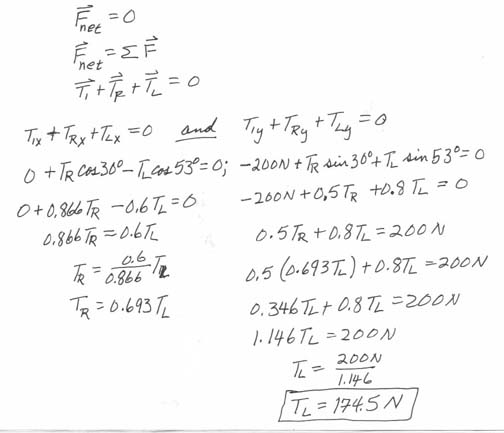 F⃗net = 0
F⃗net = Σ F⃗
T⃗1 + T⃗R + T⃗L = 0
T1x + TRx + TLx = 0 and T1y + TRy + TLy = 0
0 + TR cos30° - TL cos53° = 0; -200N + TR sin30° + TL sin53° = 0
0 + 0.866TR - 0.6TL = 0
-200N + 0.5TR + 0.8TL = 0
0.866TR = 0.6TL
0.5TR + 0.8TL = 200N
TR = 0.6/0.866 TL
0.5(0.693TL) + 0.8TL = 200N
TR = 0.693TL
0.346TL + 0.8TL = 200N
1.146TL = 200N
TL = 200N/1.146
TL = 174.5N